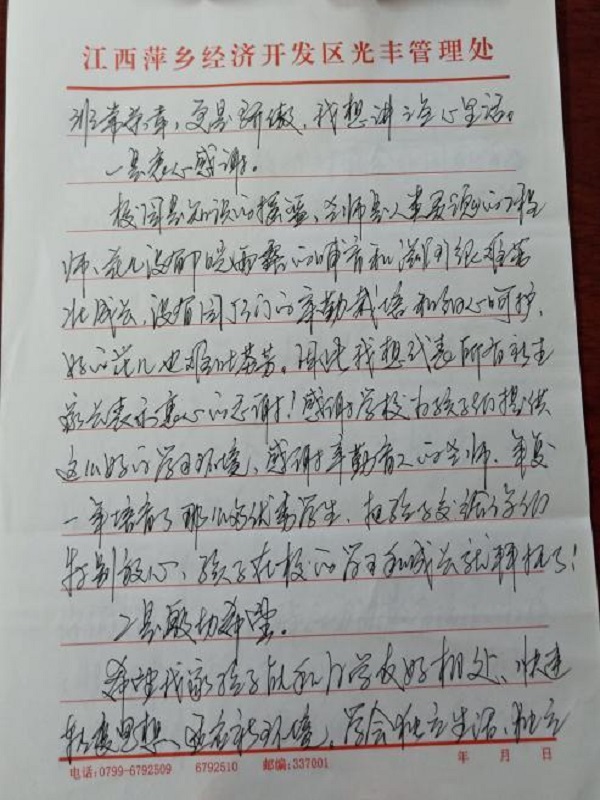 江西萍乡经济开发区光丰管理处
非常荣幸，更是骄傲，我想讲三点心里话。
一是衷心感谢。
校园是知识的摇篮、老师是人类灵魂的工程
师、花儿没有阳光雨露的哺育和滋润很难茁
壮成长，没有园丁们的辛勤栽培和细心呵护，
好的花儿也难吐芬芳。因此我想代表所有新生
家长表示衷心的感谢！感谢学校为孩子们提供
这么好的学习环境，感谢辛勤育人的老师、年复
一年培育了那么多优秀学生，把孩子交给你们
特别放心、孩子在校的学习和成长就拜托了！
二是殷切希望。
希望我家孩子能和同学友好相处、快速
转变思想、适应新环境，学会独立生活、独立
电话:0799-6792509 6792510 邮编:337001 年 月 日